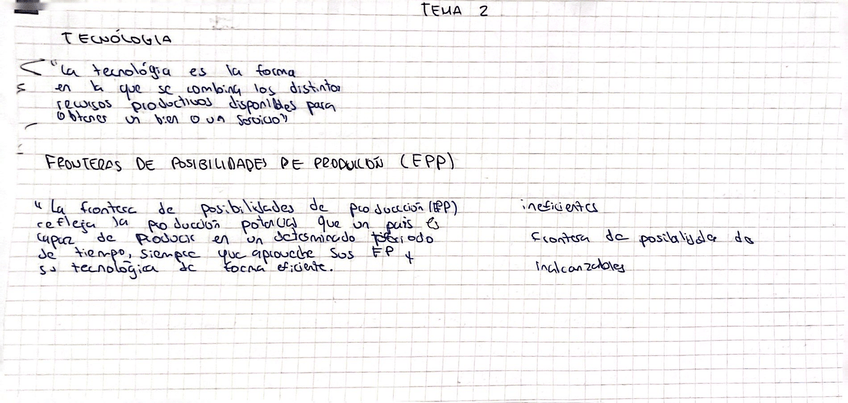 TEMA 2
TECNÓLOGIA
"La tecnológia es la forma
en la que se combina los distintos
recursos productivos disponibles para
obtener un bien o un servicio"
FRONTERAS DE POSIBILIDADES DE PRODUCIÓN (FPP)
"La frontera de posibilidades de producción (FPP)
refleja la producción potencial que un país es
capaz de producir en un determinado periodo
de tiempo, siempre que aproveche sus FP y
su tecnológica de forma eficiente.
ineficientes
Frontera de posibilidades de
inalcanzables